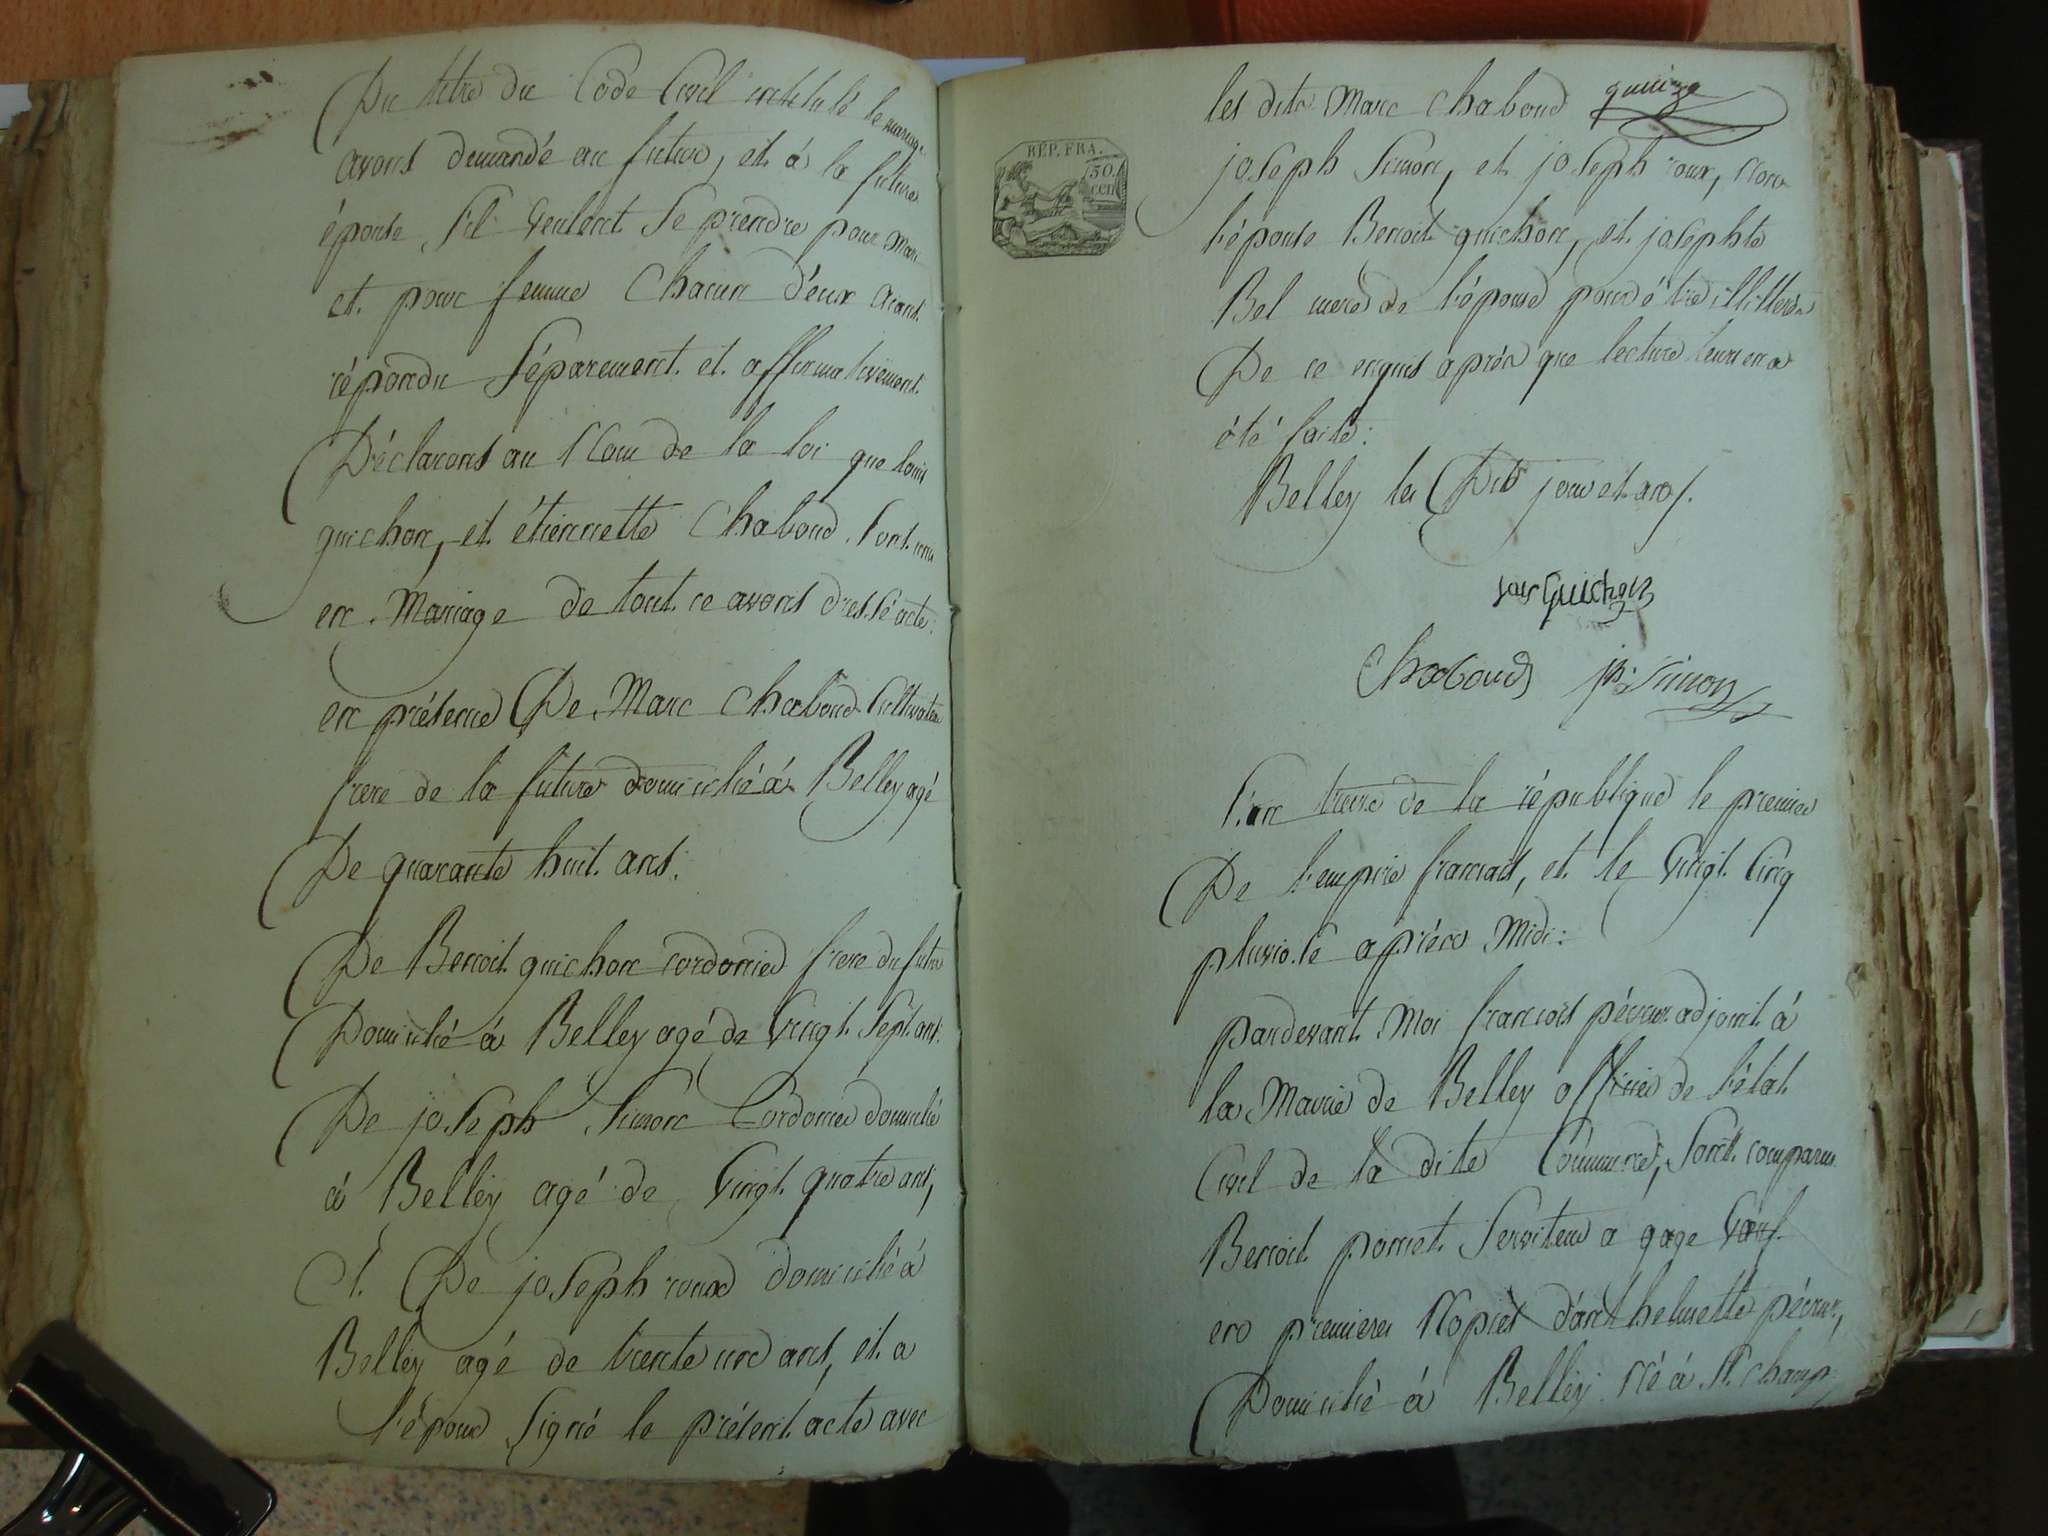 Du titre du Code Civil intitulé le mariage
avons demandé au futur, et à la future
épouse s'il veulent se prendre pour mari
et pour femme chacun d'eux aiant
répondu séparement et affirmativement
Déclarons au Nom de la loi que louis
guichon, et étiennette Chaboud sont unis
en Mariage de tout ce avons dressé acte:
en présence De Marc Chaboud Cultivateur
frere de la future domicilié à Belley agé
De quarante huit ans:
De Benoit guichon cordonnier frere du futur
Domicilié à Belley agé de Vingt Sept ans:
De joseph Simon Cordonnier domicilié
à Belley agé de Vingt quatre ans,
et De joseph roux domicilié à
Belley agé de trente un ans, et a
l'époux Signé le présent acte avec
les dits Marc Chaboud quinze
REP. FRA.
50. cen
joseph Simon, et joseph roux, non
l'épouse Benoit guichon, et josephte
Bel mere de l'époux pour être illitterés
De ce enquis après que lecture leur en a
été faite:
Belley les Dits jour et an.
Louis Guichon
Chaboud js. Simon
l'an treize de la république le premier
De l'empire francais, et le Vingt Cinq
pluviose après Midi:
pardevant Moi francois péceur adjoint à
la Mairie de Belley officier de l'état
Civil de la dite Commune, Sont comparus
Benoit pornet Serviteur a gage Veuf
en premieres Nopces d'anthelmette péceur,
Domicilié à Belley né à St. champ,